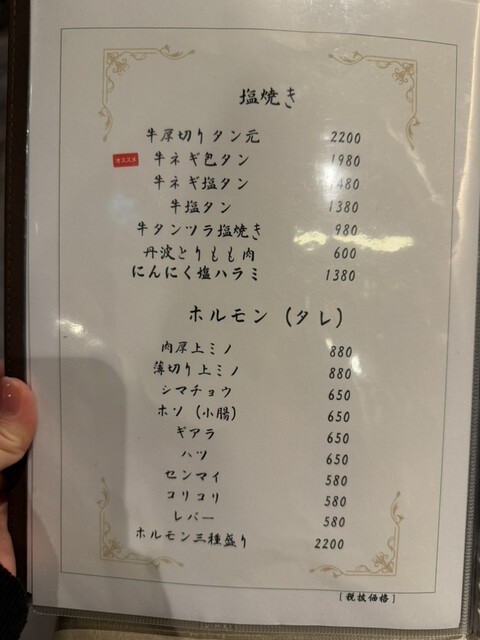 塩焼き
牛厚切りタン元 2200
オススメ 牛ネギ包タン 1980
牛ネギ塩タン 1480
牛塩タン 1380
牛タンツラ塩焼き 980
丹波とりもも肉 600
にんにく塩ハラミ 1380
ホルモン（タレ）
肉厚上ミノ 880
薄切り上ミノ 880
シマチョウ 650
ホソ（小腸） 650
ギアラ 650
ハツ 650
センマイ 580
コリコリ 580
レバー 580
ホルモン三種盛り 2200
[税抜価格]